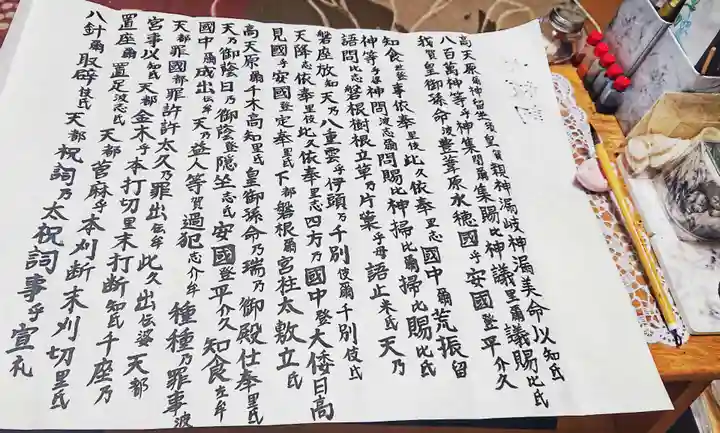 高天原爾神留坐須皇賀親神漏岐神漏美命以知氐
八百萬神等乎神集閇爾集賜比神議里爾議賜比氐
我賀皇御孫命波豊葦原水穂國乎安國登平介久
知食登事依奉里伎比久依奉里志國中爾荒振留
神等乎婆神問波志爾問賜比神掃比爾掃比賜比氐
語問比志磐根樹根立草乃片葉乎母語止米氐天乃
磐座放知天乃八重雲乎伊頭乃千別伎爾千別伎氐
天降志依奉里伎比久依奉里志四方乃國中登大倭日高
見國乎安國登定奉里氐下都磐根爾宮柱太敷立氐
高天原爾千木高知里氐皇御孫命乃瑞乃御殿仕奉里氐
天乃御陰日乃御陰登隠坐志氐安國登平介久知食左牟
國中爾成出伝牟天乃益人等賀過犯志介牟種種乃罪事波
天都罪國都罪許許太久乃罪出伝牟此久出伝婆天都
宮事以知氐天都金木乎本打切里末打断知氐千座乃
置座爾置足波志氐天都菅麻乎本刈断末刈切里氐
八針爾取辟伎氐天都祝詞乃太祝詞事乎宣礼